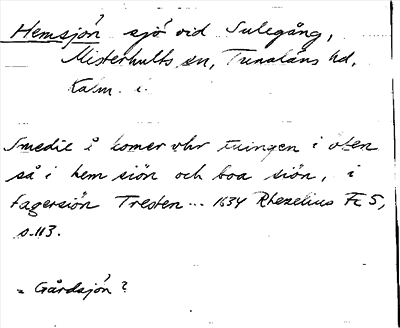 Hemsjön sjö vid Sulegång,
Misterhults sn, Tunaläns hd,
Kalm. l.
Smedie å komer vhr tuingen i oten
så i hem siön och boa siön, i
fagersiön Tresten... 1634 Rhezelius Fc 5,
s. 113.
= Gårdsjön?